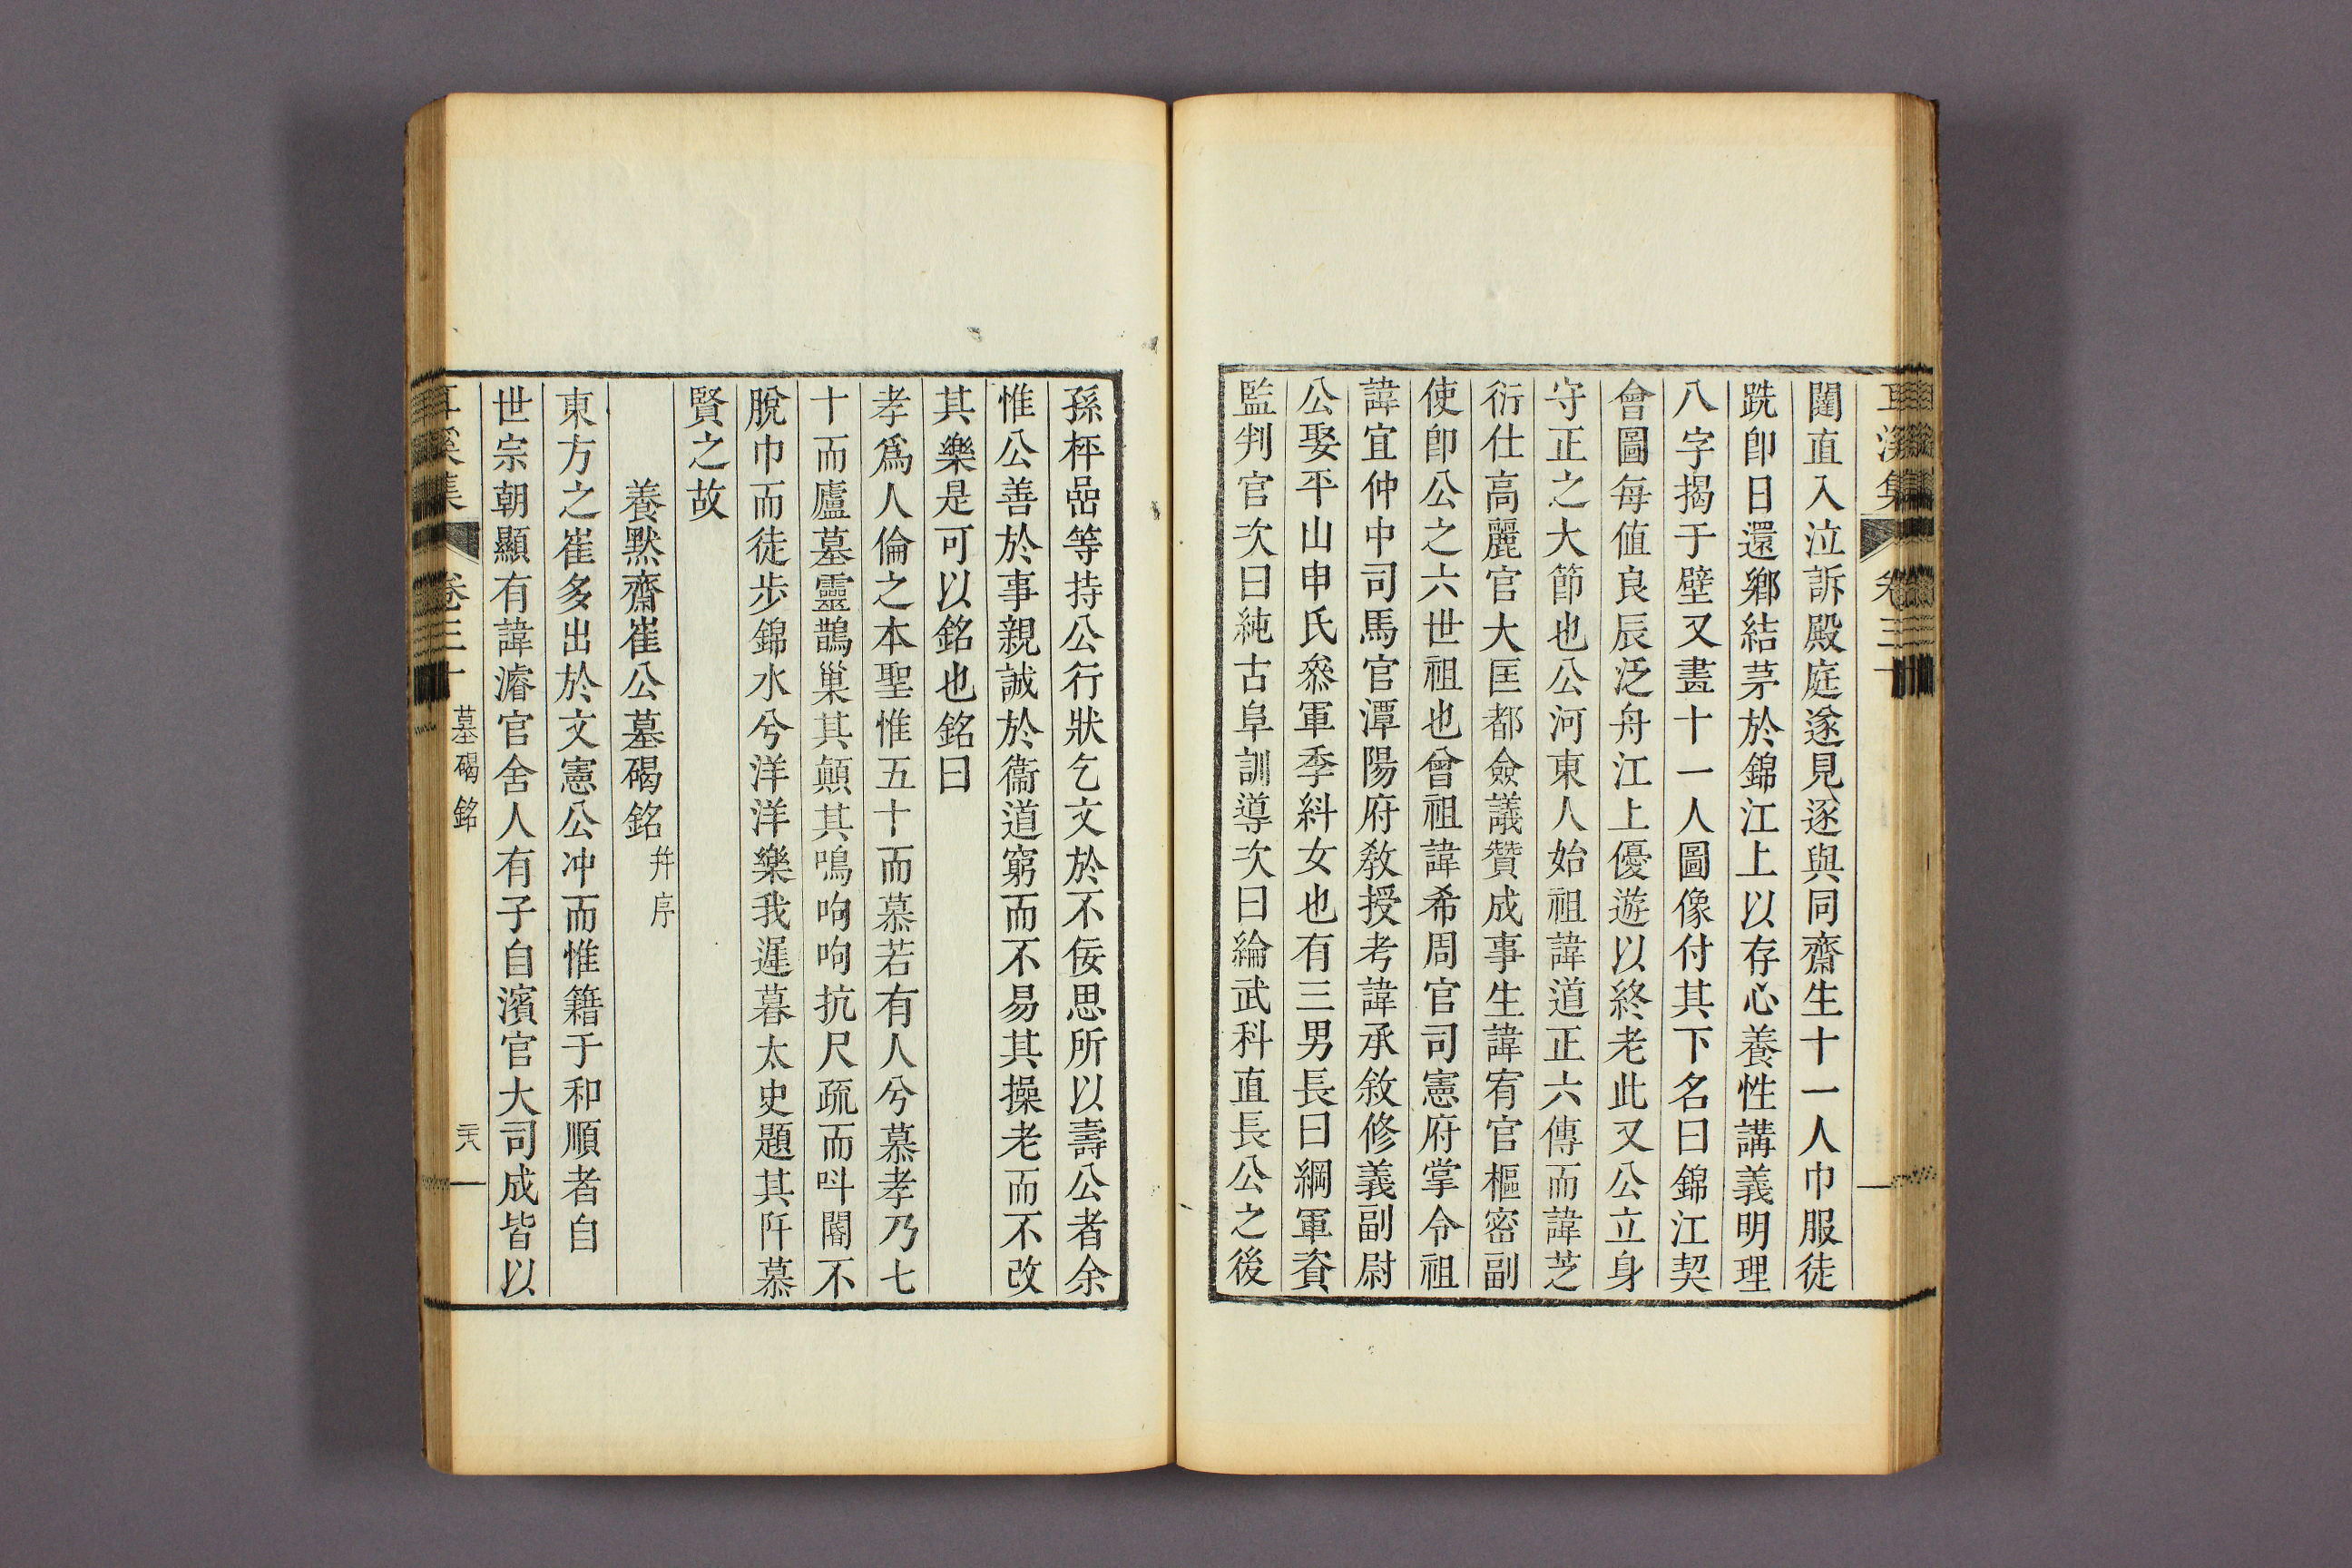 耳溪集 卷三十
闥直入泣訴殿庭遂見逐與同齋生十一人巾服徒
跣卽日還鄕結茅於錦江上以存心養性講義明理
八字揭于壁又畵十一人圖像付其下名曰錦江契
會圖每値良辰泛舟江上優遊以終老此又公立身
守正之大節也公河東人始祖諱道正六傳而諱芝
衍仕高麗官大匡都僉議贊成事生諱宥官樞密副
使卽公之六世祖也曾祖諱希周官司憲府掌令祖
諱宜仲中司馬官潭陽府敎授考諱承敘修義副尉
公娶平山申氏叅軍季紏女也有三男長曰綱軍資
監判官次曰純古阜訓導次曰綸武科直長公之後
孫枰嵒等持公行狀乞文於不佞思所以壽公者余
惟公善於事親誠於衞道窮而不易其操老而不改
其樂是可以銘也銘曰
孝爲人倫之本聖惟五十而慕若有人兮慕孝乃七
十而廬墓靈鵲巢其顚其鳴呴呴抗尺疏而呌閽不
脫巾而徒步錦水兮洋洋樂我遲暮太史題其阡慕
賢之故
養默齋崔公墓碣銘 幷序
東方之崔多出於文憲公冲而惟籍于和順者自
世宗朝顯有諱濬官舍人有子自濱官大司成皆以
耳溪集 卷三十 墓碣銘 二十八